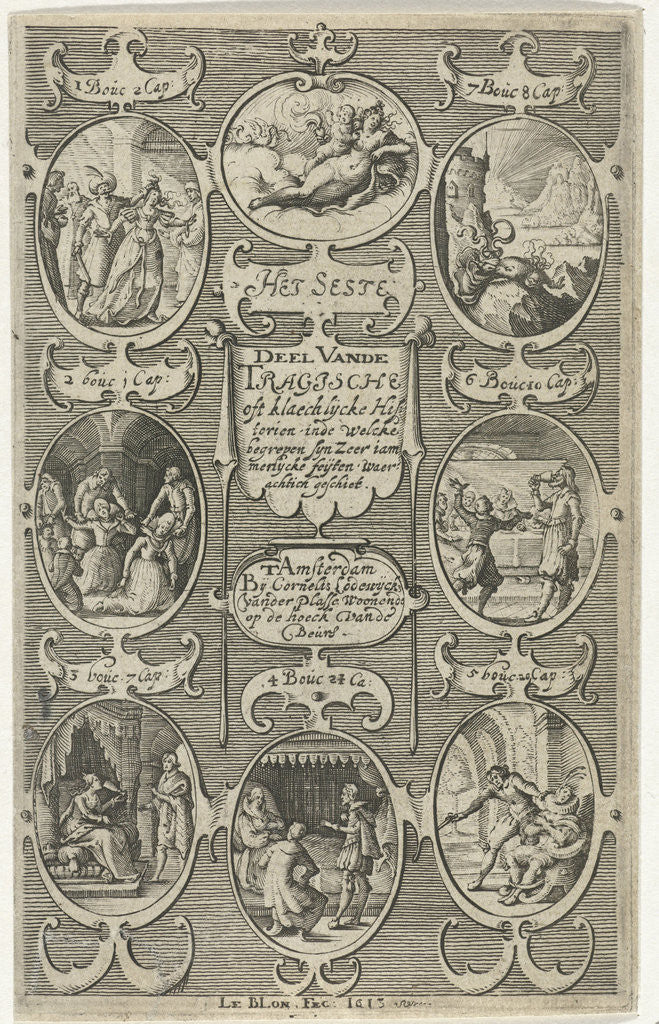 1 Boúc 2 Cap:
7 Boúc 8 Cap:
HET SESTE
DEEL VANDE
TRAGISCHE
oft klaechlycke His
torien inde Welcke
begrepen syn Zeer iam
merlycke feijten Waer
achtich geschiet.
2 boúc 1 Cap:
6 Boúc 10 Cap:
TAmsterdam
Bij Cornelis Lodewijcks
vander Plasse Woonende
op de hoeck Vande
Beúrs
3 boúc 7 Cap:
4 Boúc 24 Ca:
5 boúc 20 Cap:
LE BLON . FEC: 1613